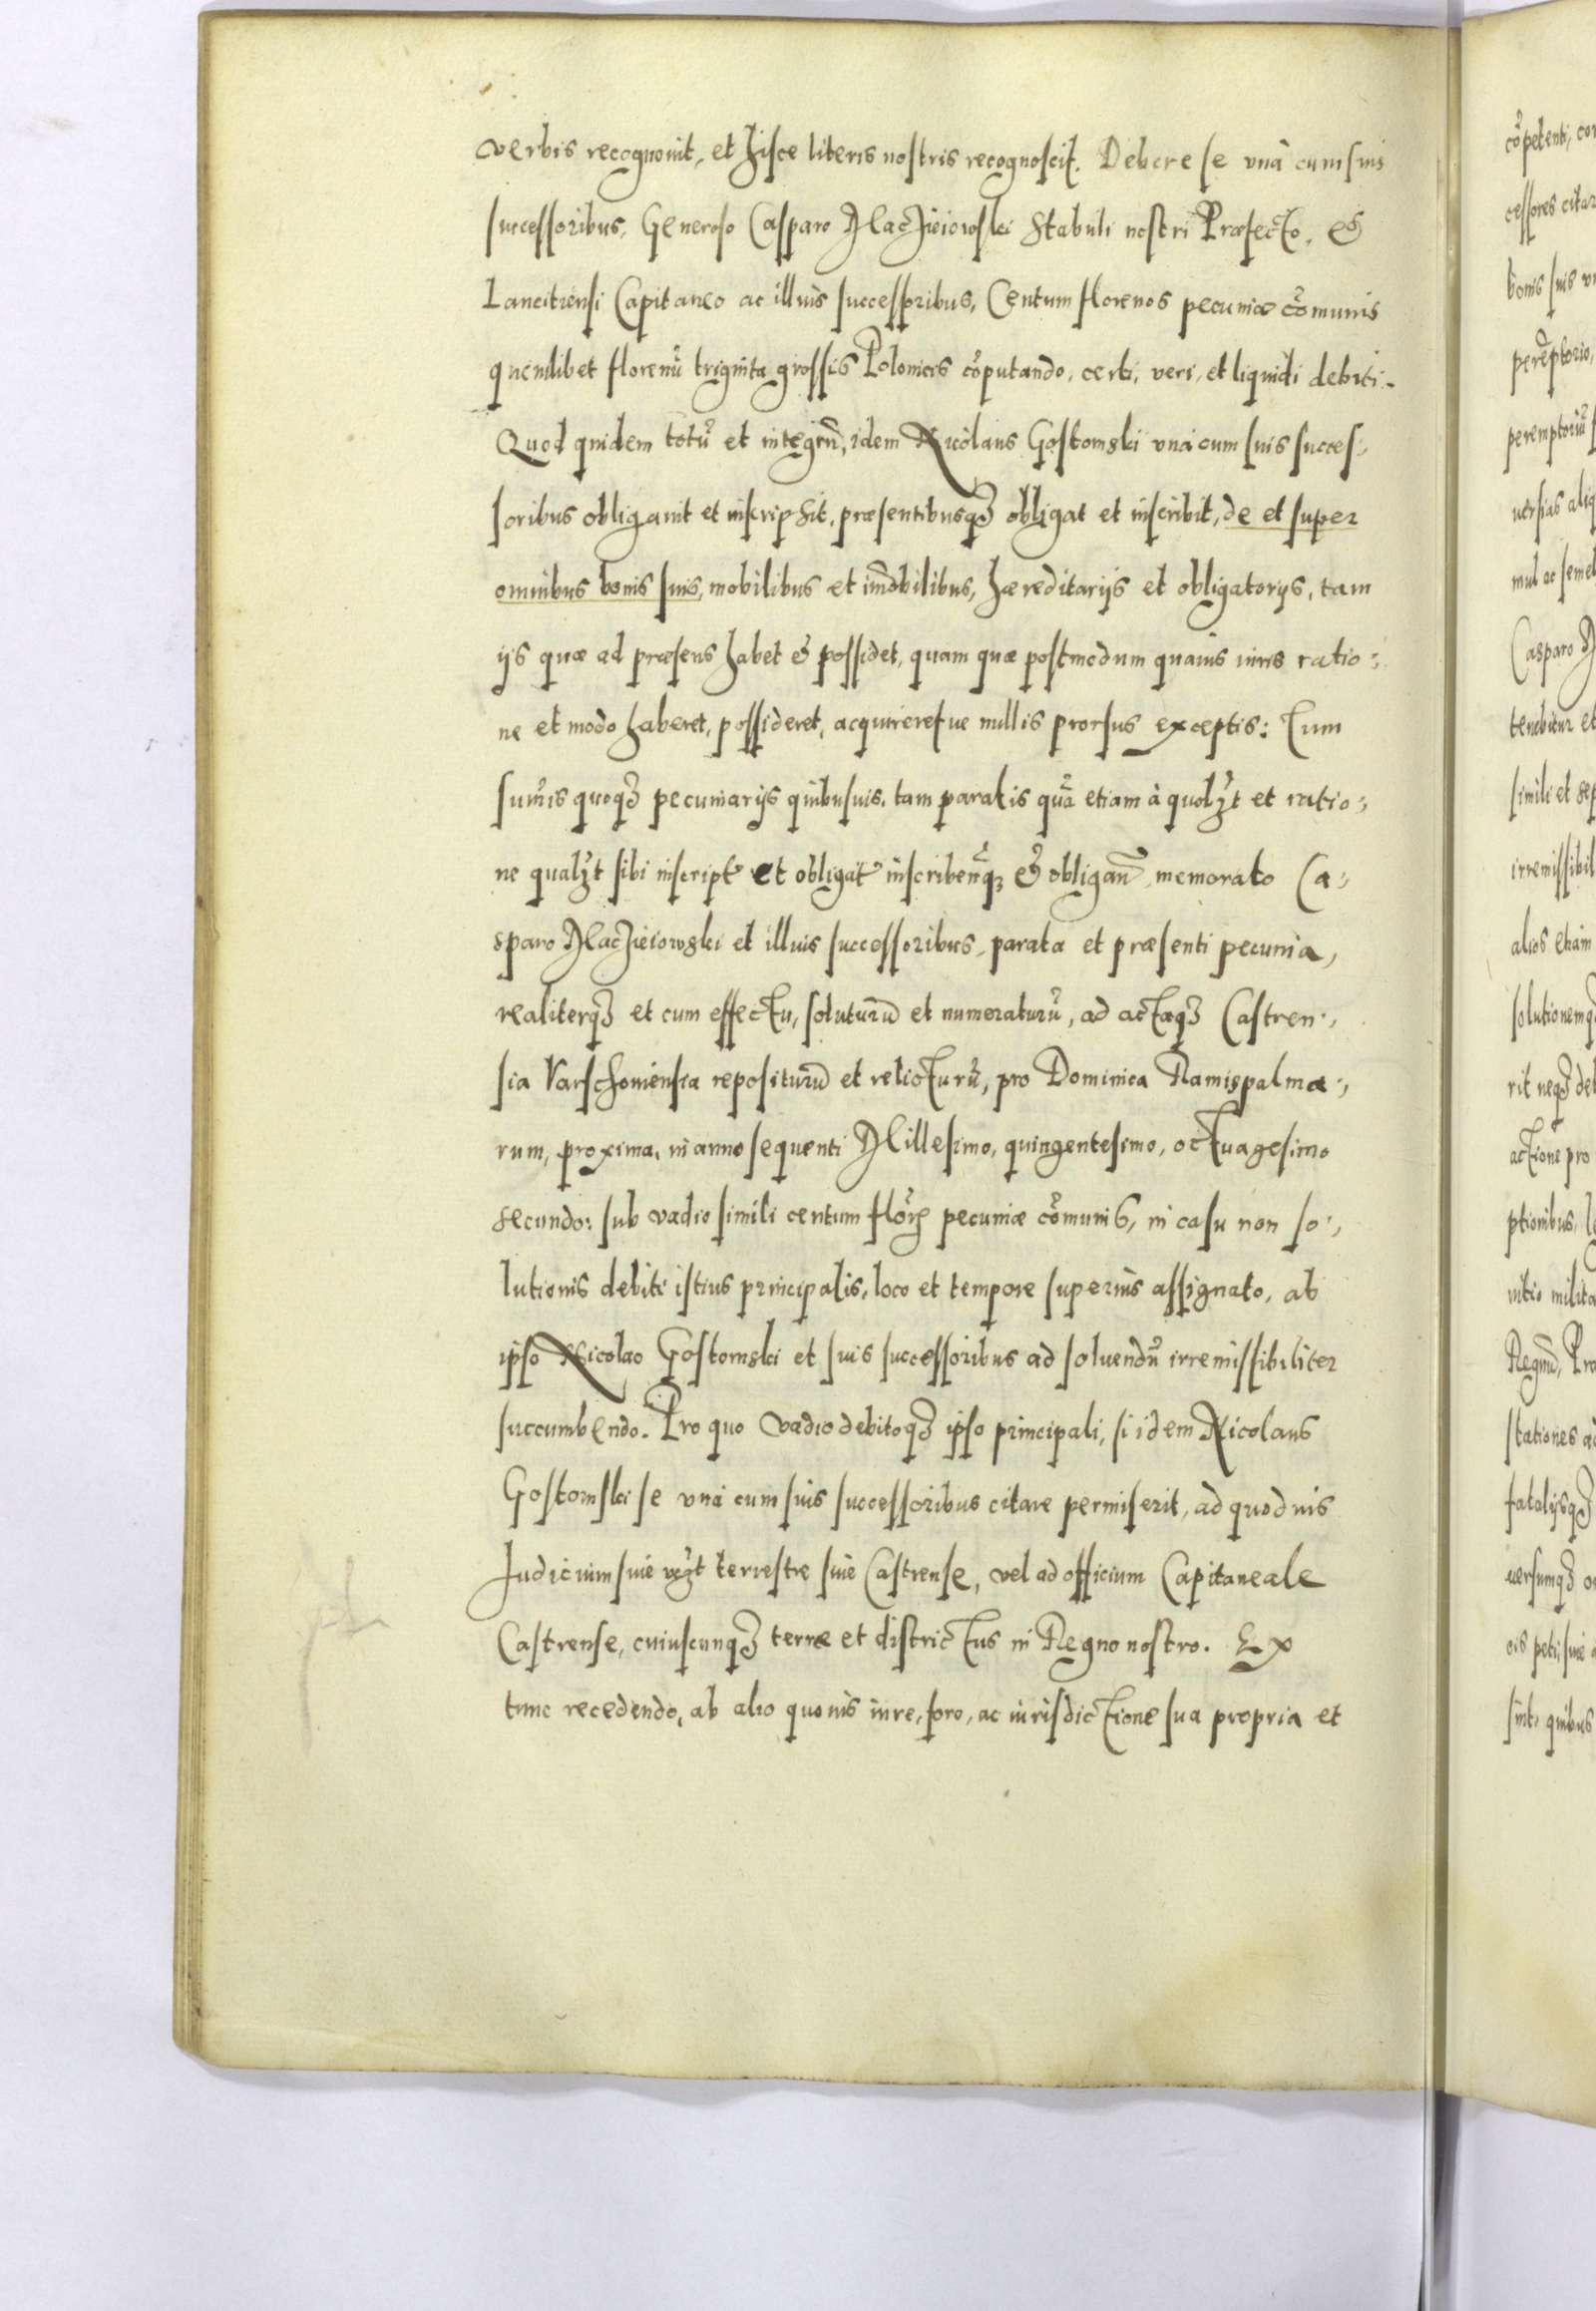 verbis recognouit, et hisce literis nostris recognoscit. Debere se vnà cum suis
successoribus, Generoso Casparo Maczieiowski Stabuli nostri Præfecto, et
Lancitiensi Capitaneo ac illius successoribus, Centum florenos pecuniæ cõmunis
quemlibet florenũ triginta grossis Polonicis cõputando, certi, veri, et liquidi debiti.
Quod quidem totũ et integrũ, idem Nicolaus Gostomski vnà cum suis succes:,
soribus obligauit et inscripsit, præsentibusq3 obligat et inscribit, de et super
omnibus bonis suis, mobilibus et im̃obilibus, hæreditarijs et obligatorijs, tam
ijs quæ ad præsens habet et possidet, quam quæ postmodum quauis iuris ratio:,
ne et modo haberet, possideret, acquireretue nullis prorsus exceptis: Tum
sum̃is quoq3 pecuniarijs quibusuis, tam paratis quã etiam à quolz̃t et ratio:,
ne qualz̃t sibi inscript̃ et obligat̃ inscribeñq3 et obligañ memorato Ca:,
sparo Maczieiowski et illius successoribus, parata et præsenti pecunia,
realiterq3 et cum effectu, soluturũ et numeraturũ, ad actaq3 Castren:,
sia Varschouiensia repositurũ et relicturũ, pro Dominica Ramispalma:,
rum, proxima, in anno sequenti Millesimo, quingentesimo, octuagesimo
secundo: sub vadio simili centum florꝝ pecuniæ cõmunis, in casu non so:,
lutionis debiti istius principalis, loco et tempore superius assignato, ab
ipso Nicolao Gostomski et suis successoribus ad soluendũ irremissibiliter
succumbendo. Pro quo vadio debitoq3 ipso principali, si idem Nicolaus
Gostomski se vnà cum suis successoribus citare permiserit, ad quoduis
Iudicium siue vz̃t terrestre siue Castrense, vel ad officium Capitaneale
Castrense, cuiuscunq3 terræ et districtus in Regno nostro. Ex
tunc recedendo, ab alio quouis iure, foro, ac iurisdictione sua propria et